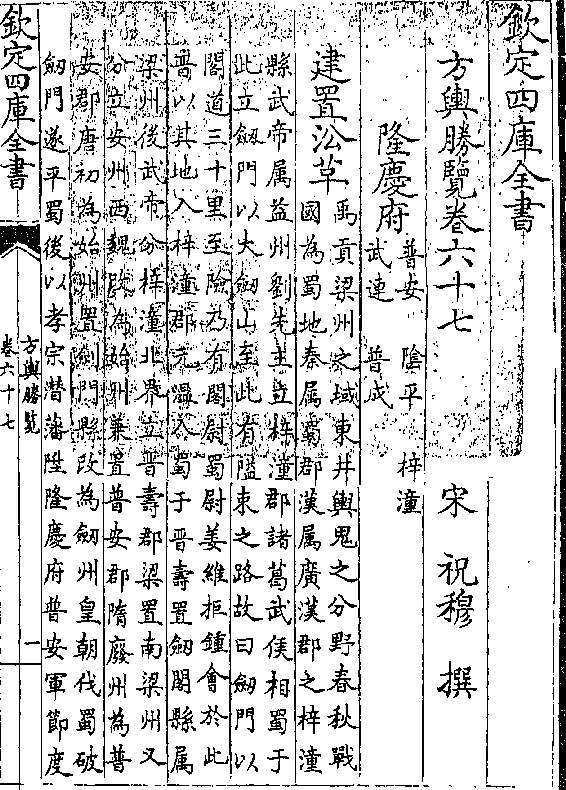 欽定四庫全書
方輿勝覽卷六十七
宋 祝穆 撰
隆慶府
普安 陰平 梓潼
武連 普成
建置沿革
禹貢梁州之域東井輿鬼之分野春秋戰
國為蜀地秦属蜀郡漢属廣漢郡之梓潼
縣武帝属益州劉先主立梓潼郡諸葛武侯相蜀于
此立劔門以大劔山至此有隘束之路故曰劔門以
閣道三十里至險乃有閣尉蜀尉姜維拒鍾會於此
晉以其地入梓潼郡元
入蜀于晉壽置劔閣縣属
梁州後武帝分梓潼北界立晉壽郡梁置南梁州又
分立安州西魏改為始州兼置普安郡隋廢州為普
安郡唐初為始州置劍門縣改為劔州皇朝伐蜀破
劔門遂平蜀後以孝宗潛藩陞隆慶府普安軍節度
欽定四庫全書
方輿勝覽
卷六十七
一